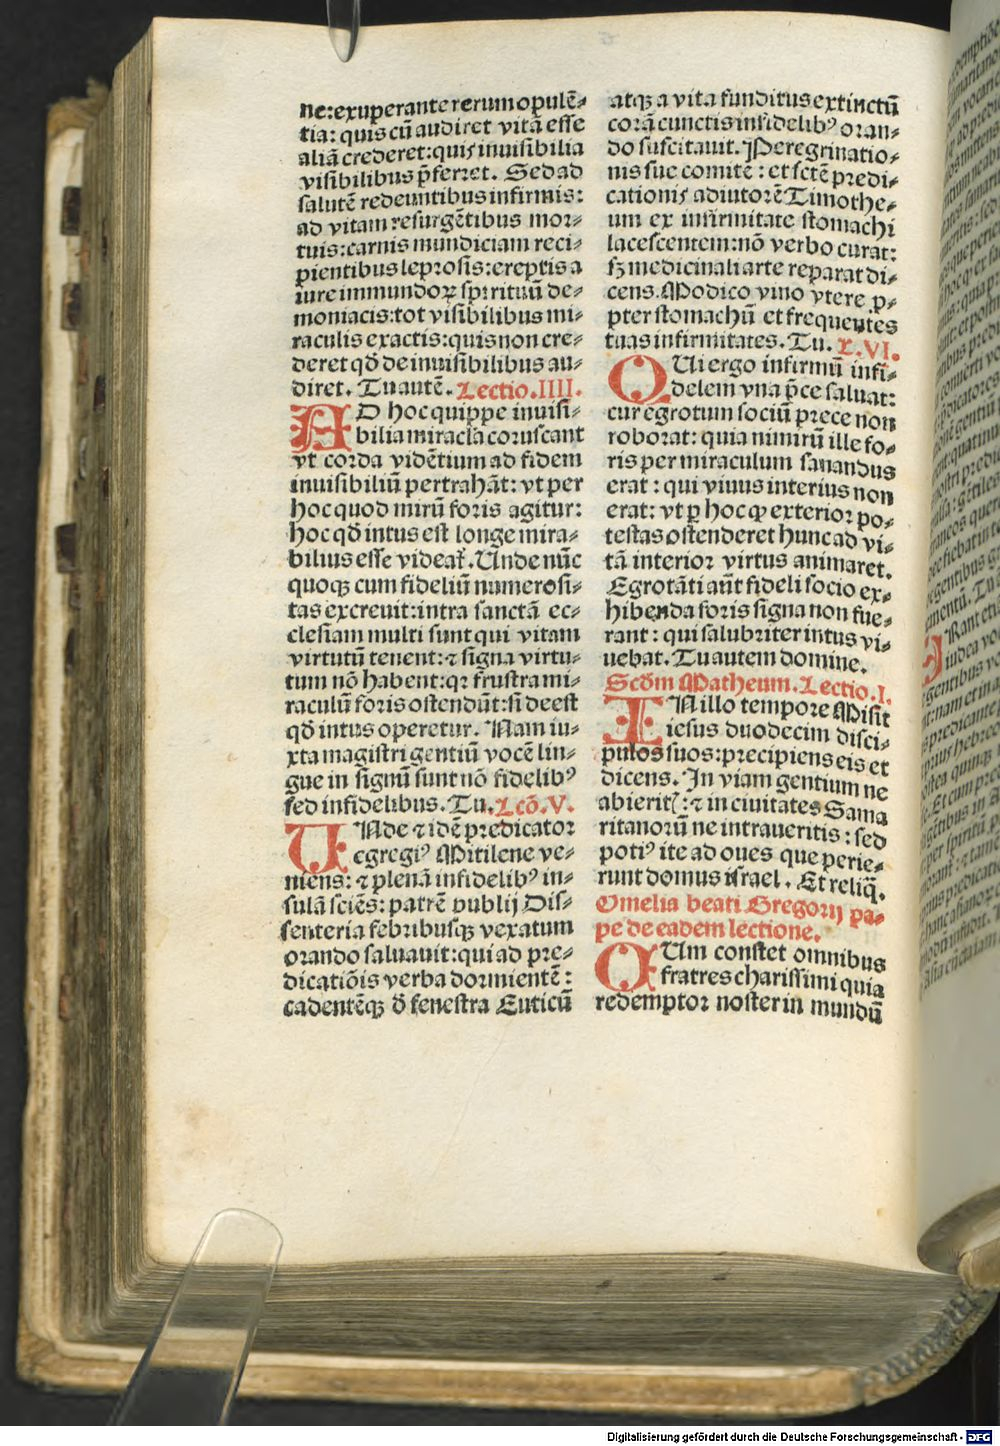 ne:exuperante rerum opulē⸗
tia: quis cū audiret vitā esse
aliā crederet:quis inuisibilia
visibilibus p̄ferret. Sed ad
salutē redeuntibus infirmis:
ad vitam resurgētibus mor⸗
tuis:carnis mundiciam reci⸗
pientibus leprosis:ereptis a
iure immundoꝝ spirituū de⸗
moniacis:tot visibilibus mi⸗
raculis exactis:quis non cre⸗
deret qd̄ de inuisibilibus au⸗
diret. Tu autē. Lectio.IIII.
AD hoc quippe inuisi⸗
bilia miracl̄a coruscant
vt corda vidētium ad fidem
inuisibiliū pertrahāt: vt per
hoc quod mirū foris agitur:
hoc qd̄ intus est longe mira⸗
bilius esse videat᷑. Unde nūc
quoqꝫ cum fideliū numerosi⸗
tas excreuit:intra sanctā ec⸗
clesiam multi sunt qui vitam
virtutū tenent:⁊ signa virtu⸗
tum nō habent:qꝛ frustra mi⸗
raculū foris ostendūt:si deest
qd̄ intus operetur. Nam iu⸗
xta magistri gentiū vocē lin⸗
gue in signū sunt nō fidelibꝰ
sed infidelibus. Tu. Lcō.V.
UNde ⁊ idē predicator
egregiꝰ Mitilene ve⸗
niens: ⁊ plenā infidelibꝰ in⸗
sulā sciēs: patrē publij dis⸗
senteria febribusqꝫ vexatum
orando saluauit:qui ad pre⸗
dicatiōis verba dormientē:
cadentēqꝫ d̄ fenestra Euticū
atqꝫ a vita funditus extinctū
corā cunctis infidelibꝰ oran⸗
do suscitauit. Peregrinatio⸗
nis sue comitē: et sctē predi⸗
cationis adiutorē Timothe⸗
um ex infirmitate stomachi
lacescentem:nō verbo curat:
sꝫ medicinali arte reparat di⸗
cens. Modico vino vtere ꝓ⸗
pter stomachū et frequentes
tuas infirmitates. Tu. L.VI.
QUi ergo infirmū infi⸗
delem vna p̄ce saluat:
cur egrotum sociū prece non
roborat: quia nimirū ille fo⸗
ris per miraculum sanandus
erat: qui viuus interius non
erat: vt ꝑ hoc qꝫ exterior po⸗
testas ostenderet hunc ad vi⸗
tā interior virtus animaret.
Egrotāti aūt fideli socio ex⸗
hibenda foris signa non fue⸗
rant: qui salubriter intus vi⸗
uebat. Tu autem domine.
Scd̄m Matheum. Lectio.I.
IN illo tempore Misit
iesus duodecim disci⸗
pulos suos:precipiens eis et
dicens. In viam gentium ne
abieritꝭ: ⁊ in ciuitates Sama
ritanorū ne intraueritis: sed
potiꝰ ite ad oues que perie⸗
runt domus israel. Et reliq̄.
Omelia beati Gregorij pa⸗
pe de eadem lectione.
QUm constet omnibus
fratres charissimi quia
redemptor noster in mundū
Digitalisierung gefördert durch die Deutsche Forschungsgemeinschaft - DFG